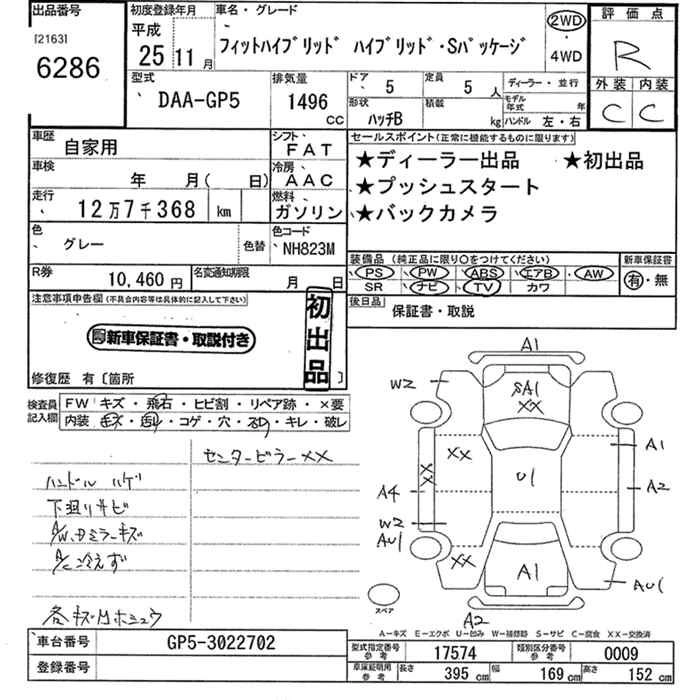 出品番号 初度登録年月 車名・グレード 評価点
[2163] 平成 フィットハイブリッド ハイブリッド・Sパッケージ 2WD
6286 25 11月 ・ 4WD R
型式 排気量 ドア 5 定員 5人 ディーラー・並行 外装 内装
DAA-GP5 1496 CC 形状 ハッチB 積載 kg モデル年式 年 C C
ハンドル 左・右
車歴 自家用 シフト FAT セールスポイント(正常に機能するものに限ります)
車検 年 月( 日) 冷房 AAC ★ディーラー出品 ★初出品
走行 12万7千368 km 燃料 ガソリン ★プッシュスタート
★バックカメラ
色 グレー 色替 色コード NH823M
装備品 (純正品に限り○をつけてください) 新車保証書
R券 10,460円 名変通知期限 月 日 PS PW ABS エアB AW 有・無
SR ナビ TV カワ
注意事項申告欄(不具合内容等は具体的に記入して下さい) 初出品 後日品 保証書・取説
新車保証書・取説付き
修復歴 有〔箇所 〕
検査員記入欄 FW キズ・飛石・ヒビ割・リペア跡・×要
内装 キズ・汚れ・コゲ・穴・スレ・キレ・破レ
センターピラーXX
ハンドル ハゲ
下廻りサビ
A/W、Dミラーキズ
A/C冷えず
各キズ凹ホシュウ
A1
W2
SA1
XX
XX
XX
U1
A1
A4
A2
W2
AU1
XX
A1
AU1
スペア
A2
A-キズ E-エクボ U-凹み W-補修跡 S-サビ C-腐食 XX-交換済
車台番号 GP5-3022702 型式指定番号 参考 17574 類別区分番号 参考 0009
登録番号 車庫証明用 参考 長さ 395 cm 幅 169 cm 高さ 152 cm